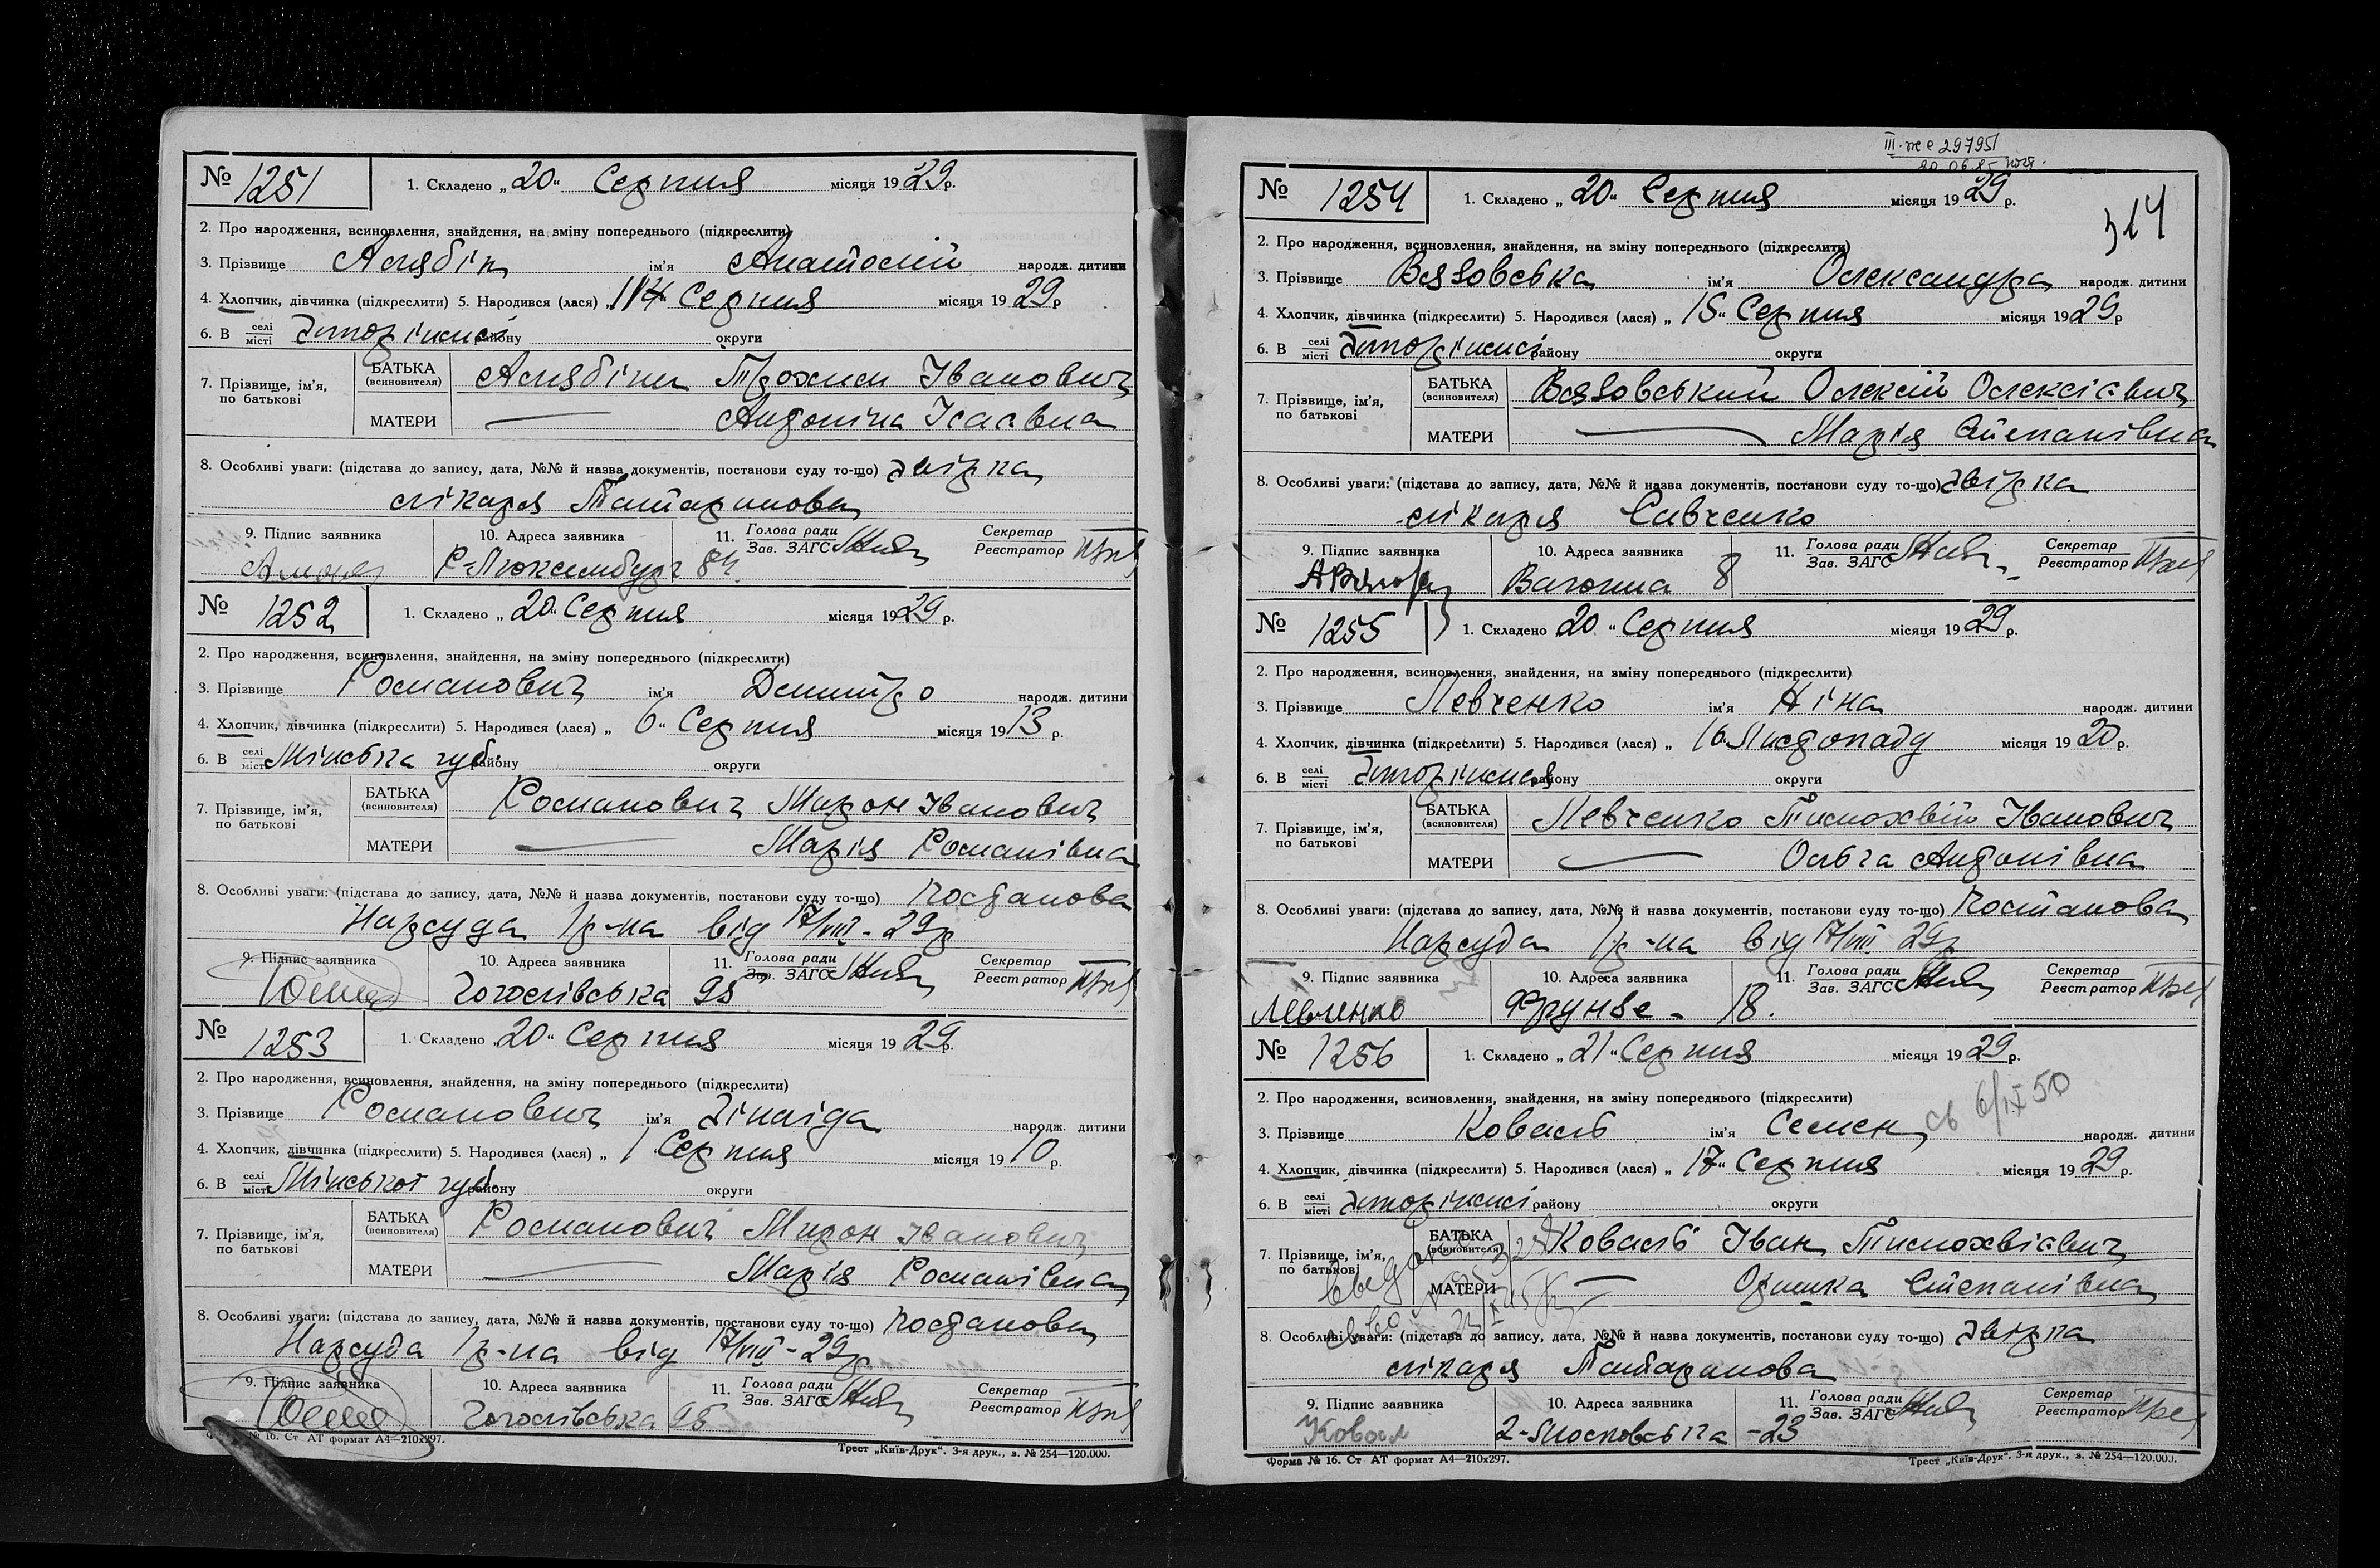 № 1251 1. Складено „20“ Серпня місяця 1929р.
2. Про народження, всиновлення, знайдення, на зміну попереднього (підкреслити)
3. Прізвище ім'я Анатолій народж. дитини
4. Хлопчик, дівчинка (підкреслити) 5. Народився (лася) „ Серпня місяця 1929р
6. В селі місті Запоріжжі району округи
7. Прізвище, ім'я, по батькові
БАТЬКА (всиновителя) Трохим Іванович
МАТЕРИ — Антоніна Ісаєвна
8. Особливі уваги: (підстава до запису, дата, №№ й назва документів, постанови суду то-що) довірка
лікаря Татаринова
9. Підпис заявника 10. Адреса заявника 11. Голова ради Зав. ЗАГС Секретар Реєстратор
Р-Люксембург 84
№ 1252 1. Складено „20“ Серпня місяця 1929 р.
2. Про народження, всиновлення, знайдення, на зміну попереднього (підкреслити)
3. Прізвище Романович ім'я Дмитро народж. дитини
4. Хлопчик, дівчинка (підкреслити) 5. Народився (лася) „6“ Серпня місяця 1913 р.
6. В селі місті Мінська губ. району округи
7. Прізвище, ім'я, по батькові
БАТЬКА (всиновителя) Романович Мирон Іванович
МАТЕРИ — Марія Романівна
8. Особливі уваги: (підстава до запису, дата, №№ й назва документів, постанови суду то-що) Постанова
Нарсуда 1 р-на від 17/VIII-29р
9. Підпис заявника 10. Адреса заявника 11. Голова ради Зав. ЗАГС Секретар Реєстратор
Гоголівська 95
№ 1253 1. Складено „20“ Серпня місяця 1929р.
2. Про народження, всиновлення, знайдення, на зміну попереднього (підкреслити)
3. Прізвище Романович ім'я Зінаїда народж. дитини
4. Хлопчик, дівчинка (підкреслити) 5. Народився (лася) „1 Серпня місяця 1910р.
6. В селі місті Мінської губ. району округи
7. Прізвище, ім'я, по батькові
БАТЬКА (всиновителя) Романович Мирон Іванович
МАТЕРИ — Марія Романівна
8. Особливі уваги: (підстава до запису, дата, №№ й назва документів, постанови суду то-що) Постанова
Нарсуда 1 р-на від 17/VIII-29р
9. Підпис заявника 10. Адреса заявника 11. Голова ради Зав. ЗАГС Секретар Реєстратор
Гоголівська 95
Форма № 16. Ст АТ формат А4—210х297. Трест „Київ-Друк“. 3-я друк., з. № 254—120.000.
314
№ 1254 1. Складено „20“ Серпня місяця 1929 р.
2. Про народження, всиновлення, знайдення, на зміну попереднього (підкреслити)
3. Прізвище Вязовська ім'я Олександра народж. дитини
4. Хлопчик, дівчинка (підкреслити) 5. Народився (лася) „15“ Серпня місяця 1929р
6. В селі місті Запоріжжі району округи
7. Прізвище, ім'я, по батькові
БАТЬКА (всиновителя) Вязовський Олексій Олексієвич
МАТЕРИ — Марія Степанівна
8. Особливі уваги: (підстава до запису, дата, №№ й назва документів, постанови суду то-що) довірка
лікаря Савченко
9. Підпис заявника 10. Адреса заявника 11. Голова ради Зав. ЗАГС Секретар Реєстратор
Вагонна 8
№ 1255 1. Складено „20“ Серпня місяця 1929 р.
2. Про народження, всиновлення, знайдення, на зміну попереднього (підкреслити)
3. Прізвище Левченко ім'я Ніна народж. дитини
4. Хлопчик, дівчинка (підкреслити) 5. Народився (лася) „16“ Листопаду місяця 1920 р.
6. В селі місті Запоріжжя району округи
7. Прізвище, ім'я, по батькові
БАТЬКА (всиновителя) Левченко Тимохвій Іванович
МАТЕРИ — Ольга Антонівна
8. Особливі уваги: (підстава до запису, дата, №№ й назва документів, постанови суду то-що) Постанова
Нарсуда 1 р-на від 17/VIII 29р
9. Підпис заявника 10. Адреса заявника 11. Голова ради Зав. ЗАГС Секретар Реєстратор
Левченко Фрунзе - 18.
№ 1256 1. Складено „21“ Серпня місяця 1929 р.
2. Про народження, всиновлення, знайдення, на зміну попереднього (підкреслити)
3. Прізвище Коваль ім'я Семен св 6/IX 50 народж. дитини
4. Хлопчик, дівчинка (підкреслити) 5. Народився (лася) „17“ Серпня місяця 1929 р.
6. В селі місті Запоріжжі району округи
7. Прізвище, ім'я, по батькові
БАТЬКА (всиновителя) Коваль Іван Тимохвієвич
МАТЕРИ — Оришка Степанівна
8. Особливі уваги: (підстава до запису, дата, №№ й назва документів, постанови суду то-що) довірка
лікаря Татаринова
9. Підпис заявника 10. Адреса заявника 11. Голова ради Зав. ЗАГС Секретар Реєстратор
Ковал 2-Московська - 23
Форма № 16. Ст АТ формат А4—210х297. Трест „Київ-Друк“. 3-я друк., з. № 254—120.000.